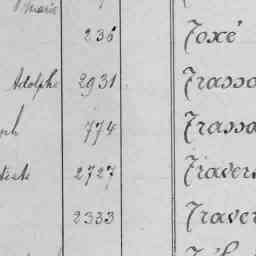 Marie
236 Foxé
Adolphe 2931 Frasso
ph 774 Frasso
2727 Fravers
2333 Fraver